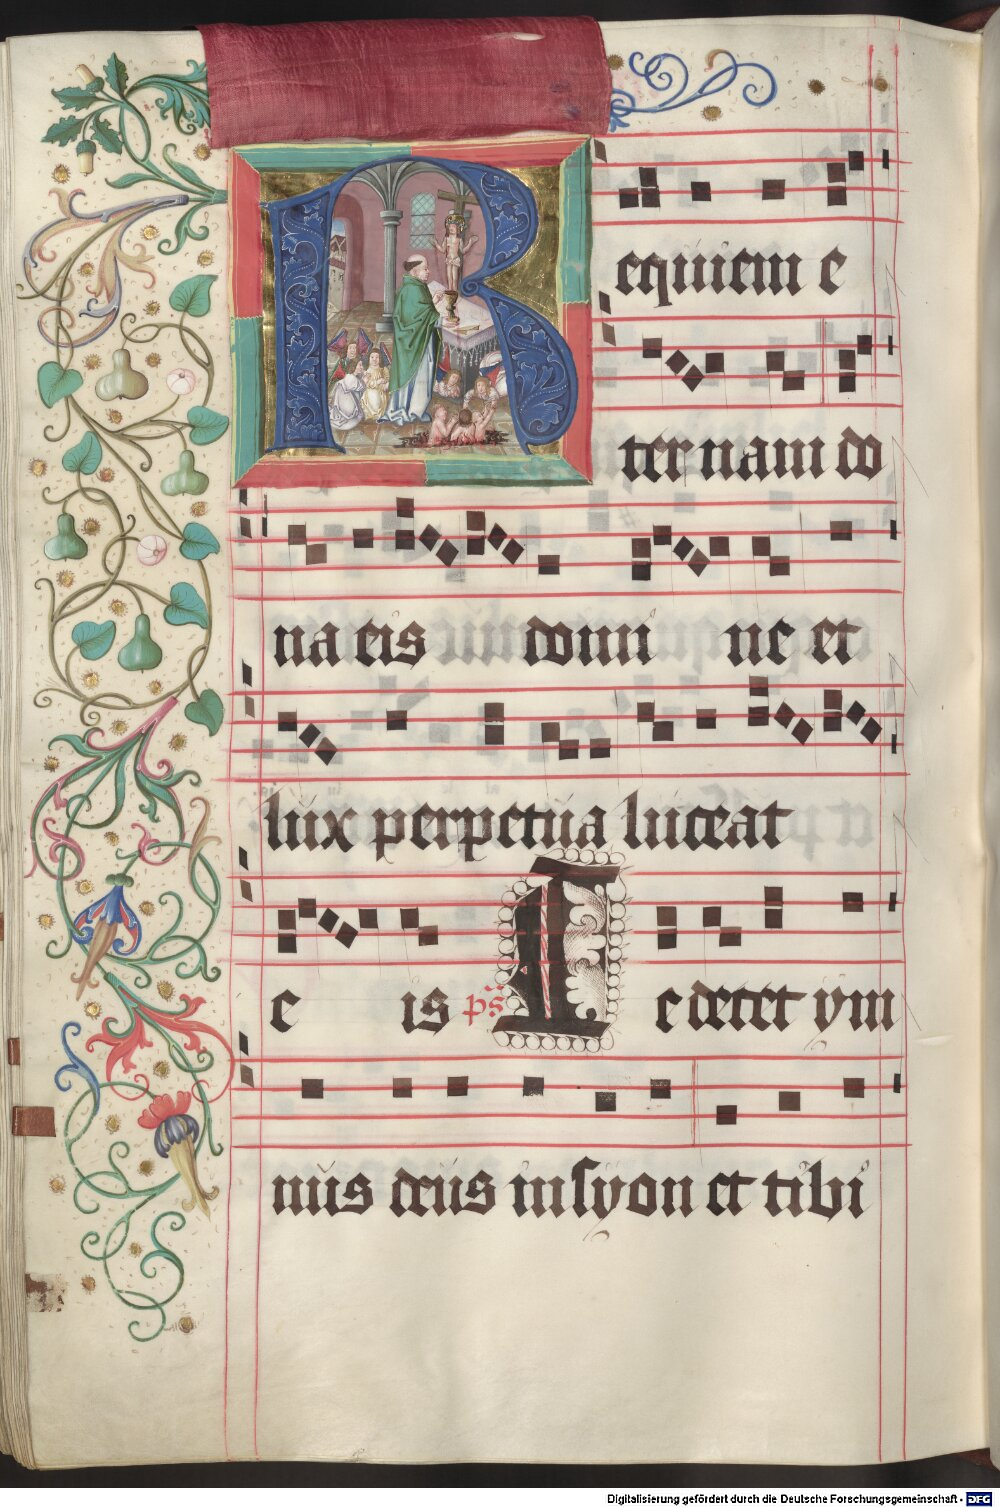 Requiem e
ternam do
na eis domi ne et
lux perpetua luceat
e is ps Te decet ym
nus deus in syon et tibi
Digitalisierung gefördert durch die Deutsche Forschungsgemeinschaft - DFG